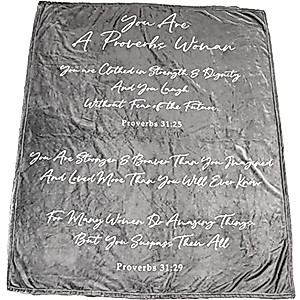 You Are
A Proverbs Woman
You are Clothed in Strength & Dignity
And You Laugh
Without Fear of the Future
Proverbs 31:25
You Are Stronger & Braver Than You Imagined
And Loved More Than You Will Ever Know
For Many Women Do Amazing Things
But You Surpass Them All
Proverbs 31:29